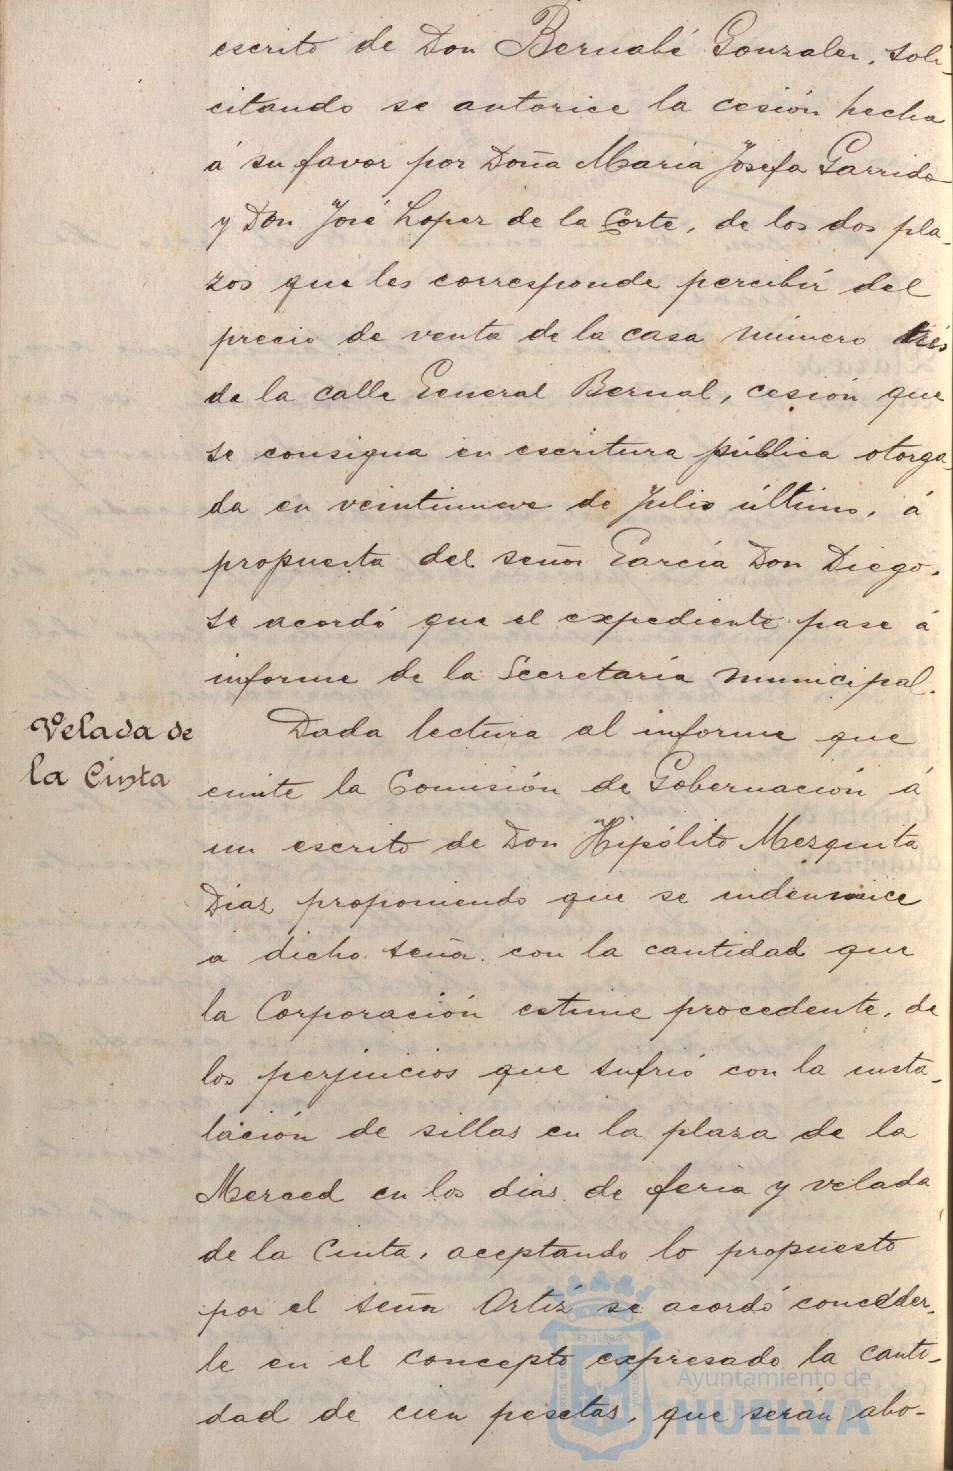 escrito de Don Bernabé Gonzalez, soli-
citando se autorice la cesión hecha
á su favor por Doña Maria Josefa Garrido
y Don José Lopez de la Corte, de los dos pla-
zos que les corresponde percibir del
precio de venta de la casa número tres
de la calle General Bernal, cesión que
se consigna en escritura pública otorga-
da en veintinueve de Julio último, á
propuesta del señor García Don Diego,
se acordó que el expediente pase á
informe de la Secretaría municipal.
Velada de
la Cinta
Dada lectura al informe que
emite la Comisión de Gobernación á
un escrito de Don Hipólito Mezquita
Diaz proponiendo que se indemnice
a dicho señor con la cantidad que
la Corporación estime procedente, de
los perjuicios que sufrió con la insta-
lación de sillas en la plaza de la
Merced en los dias de feria y velada
de la Cinta, aceptando lo propuesto
por el señor Ortiz se acordó concedder-
le en el concepto expresado la canti-
dad de cien pesetas, que serán abo-
Ayuntamiento de
HUELVA